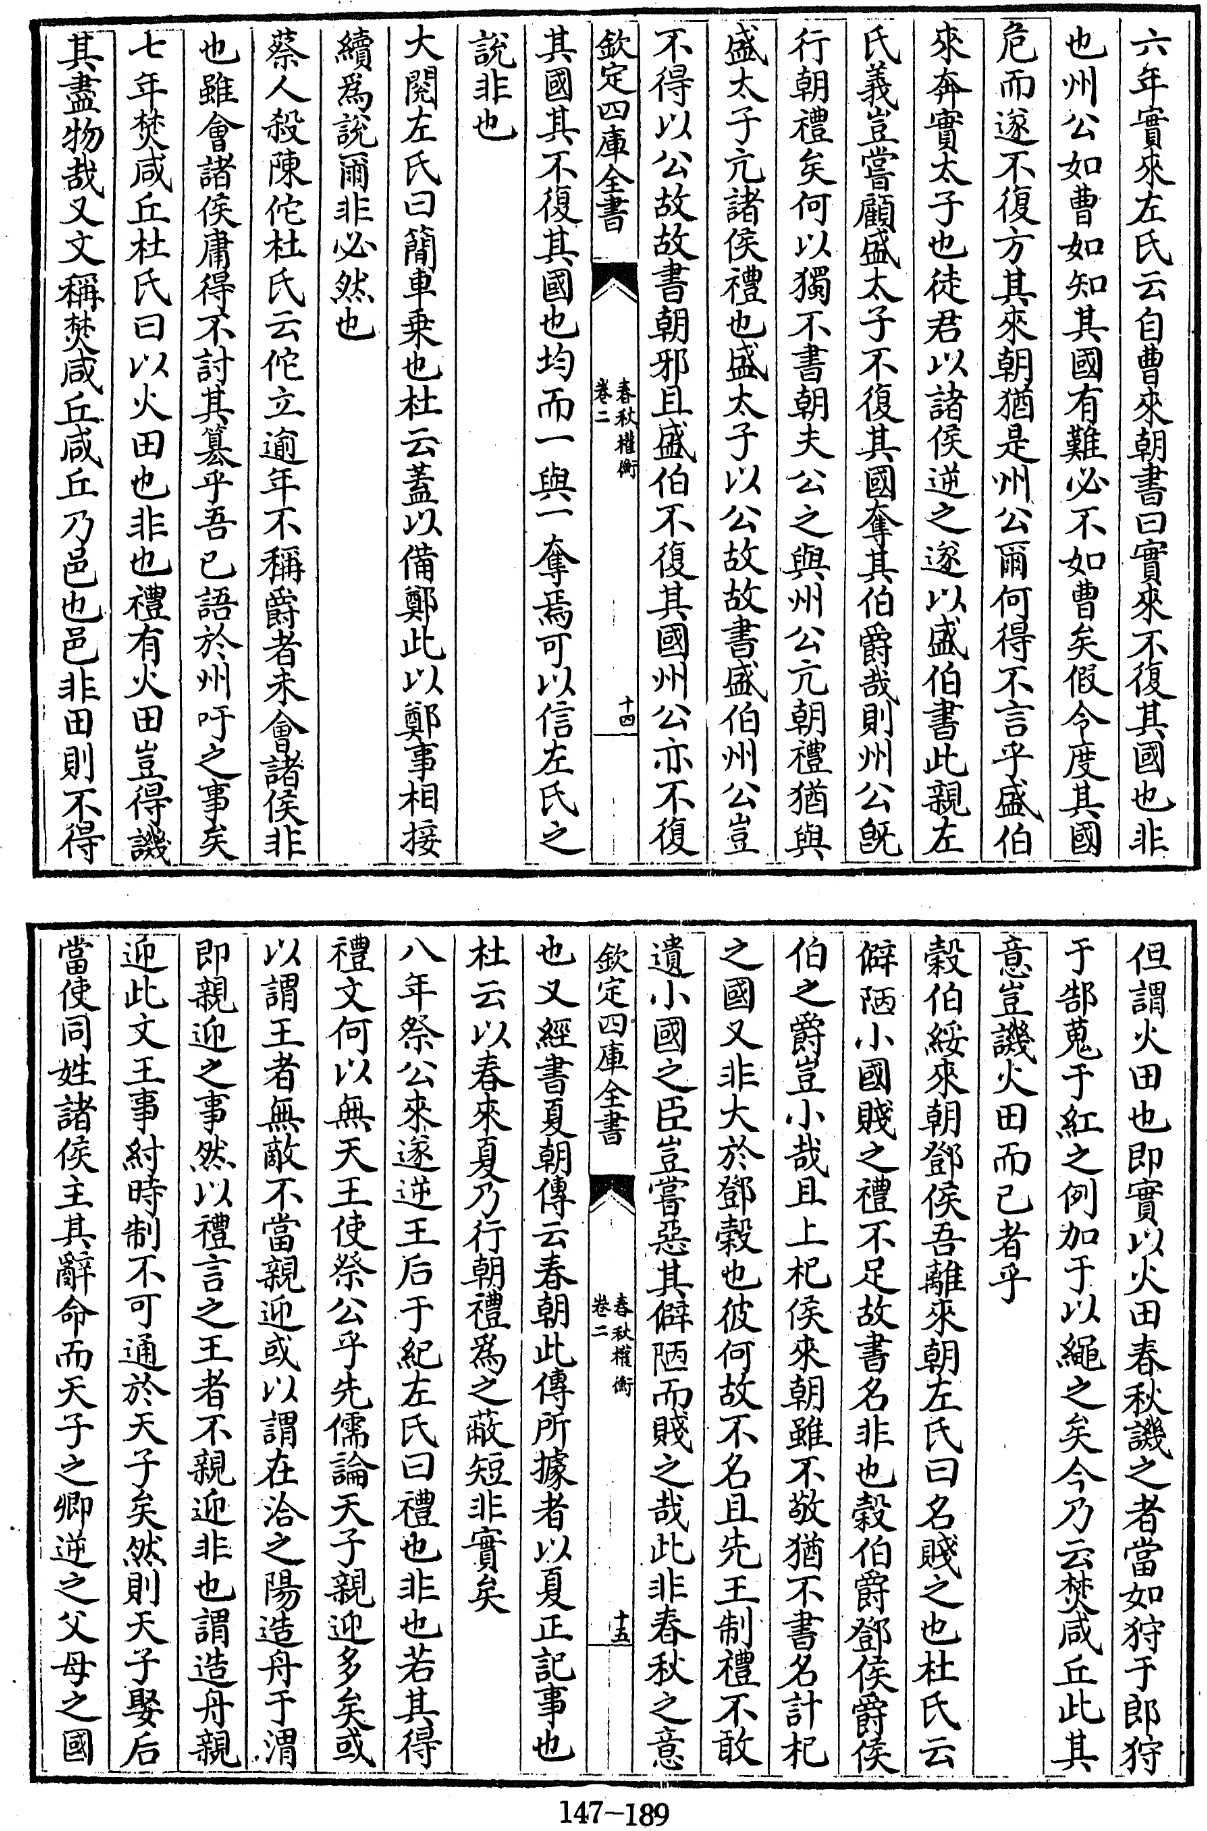 六年實來左氏云自曹來朝書曰實來不復其國也非
也州公如曹如知其國有難必不如曹矣假令度其國
危而遂不復方其來朝猶是州公爾何得不言乎盛伯
來奔實太子也徒君以諸侯逆之遂以盛伯書此親左
氏義豈嘗顧盛太子不復其國奪其伯爵哉則州公旣
行朝禮矣何以獨不書朝夫公之與州公亢朝禮猶與
盛太子亢諸侯禮也盛太子以公故故書盛伯州公豈
不得以公故故書朝邪且盛伯不復其國州公亦不復
欽定四庫全書
春秋權衡
卷二
十四
其國其不復其國也均而一與一奪焉可以信左氏之
說非也
大閱左氏曰簡車乗也杜云蓋以備鄭此以鄭事相接
續爲說爾非必然也
蔡人殺陳佗杜氏云佗立逾年不稱爵者未會諸侯非
也雖會諸侯庸得不討其簒乎吾已語於州吁之事矣
七年焚咸丘杜氏曰以火田也非也禮有火田豈得譏
其盡物哉又文稱焚咸丘咸丘乃邑也邑非田則不得
但謂火田也即實以火田春秋譏之者當如狩于郎狩
于郜蒐于紅之例加于以繩之矣今乃云焚咸丘此其
意豈譏火田而已者乎
榖伯綏來朝鄧侯吾離來朝左氏曰名賤之也杜氏云
僻陋小國賤之禮不足故書名非也榖伯爵鄧侯爵侯
伯之爵豈小哉且上杞侯來朝雖不敬猶不書名計杞
之國又非大於鄧榖也彼何故不名且先王制禮不敢
遺小國之臣豈嘗惡其僻陋而賤之哉此非春秋之意
欽定四庫全書
春秋權衡
卷二
十五
也又經書夏朝傳云春朝此傳所據者以夏正記事也
杜云以春來夏乃行朝禮爲之蔽短非實矣
八年祭公來遂逆王后于紀左氏曰禮也非也若其得
禮文何以無天王使祭公乎先儒論天子親迎多矣或
以謂王者無敵不當親迎或以謂在洽之陽造舟于渭
即親迎之事然以禮言之王者不親迎非也謂造舟親
迎此文王事紂時制不可通於天子矣然則天子娶后
當使同姓諸侯主其辭命而天子之卿逆之父母之國
147-189